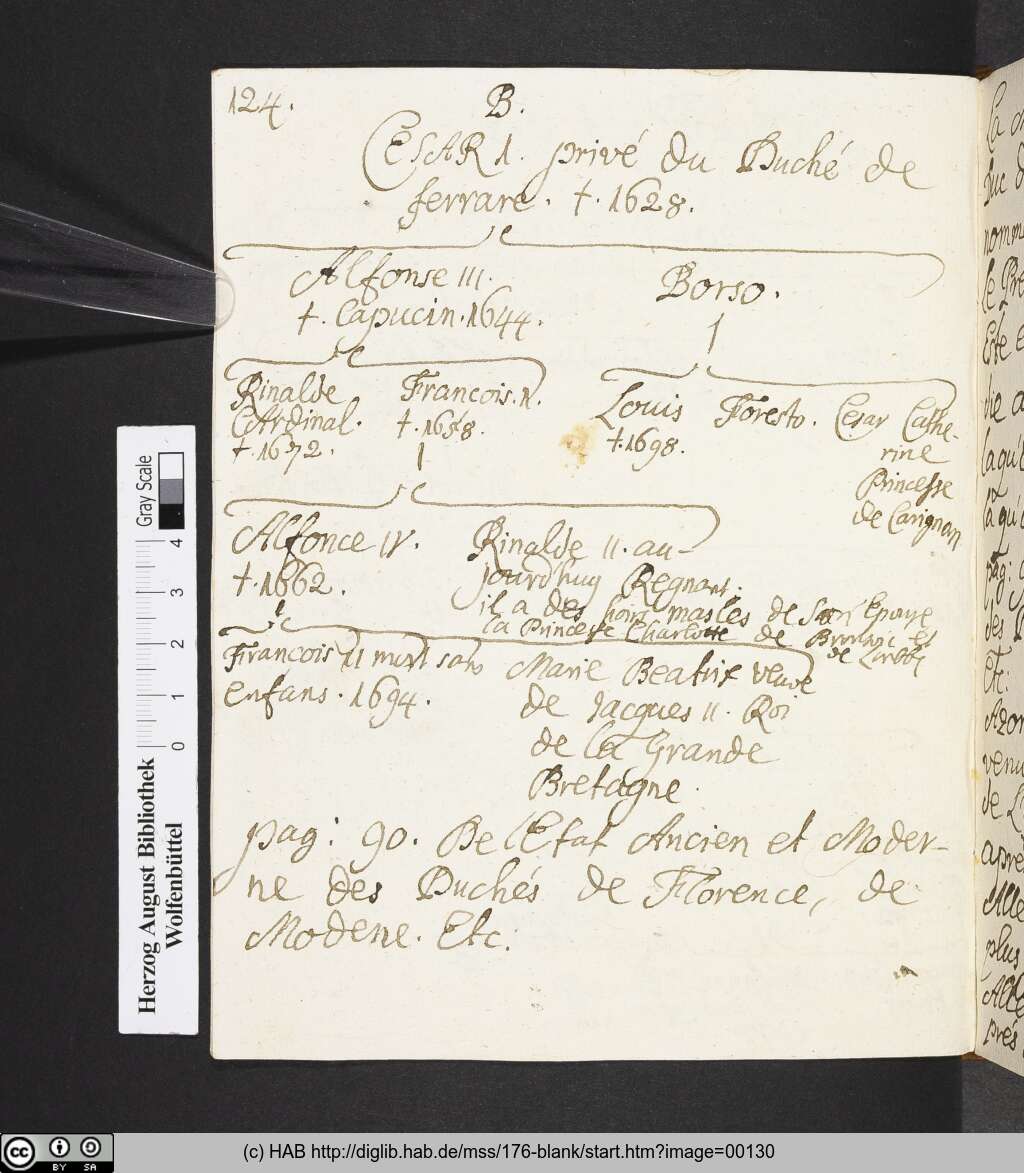 124.
B.
CESAR I. privé du Duché de
ferrare. †. 1628.
Alfonse III.
†. Capucin. 1644.
Borso.
Rinalde
Cardinal.
†. 1672.
Francois. II.
†. 1658.
Louis
†. 1698.
Foresto.
Cesar
Cathe-
rine
Princesse
de Carignan
Alfonce IV.
†. 1662.
Rinalde II. au-
jourd'huy Regnant.
il a des hoirs masles de son Epouse
la Princesse Charlotte de Brunsvic et
de
Francois II mort sans
enfans. 1694.
Marie Beatrix veuve
de Jacques II. Roi
de la Grande
Bretagne.
pag: 90. De l'Etat Ancien et Moder-
ne des Duchés de Florence, de
Modene. Etc.
Herzog August Bibliothek
Wolfenbüttel
Gray Scale
0 1 2 3 4
(c) HAB http://diglib.hab.de/mss/176-blank/start.htm?image=00130
cc BY SA